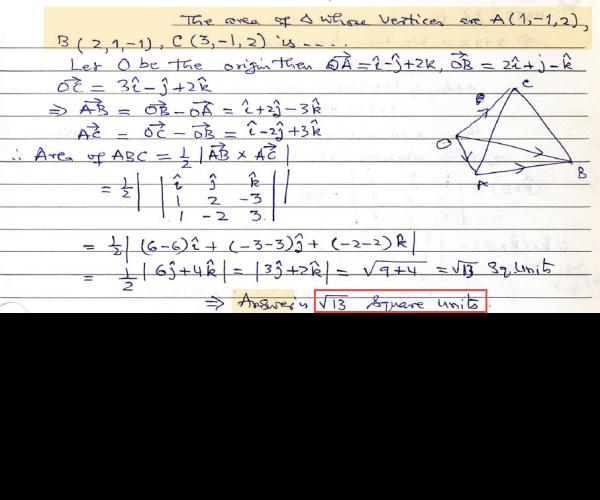 The area of Δ whose vertices are A(1,-1,2),
B(2,1,-1), C(3,-1,2) is ....
Let O be the origin then OA = î-ĵ+2k, OB = 2î+j-k̂
OC = 3î-ĵ+2k̂
⇒ AB = OB-OA = î+2ĵ-3k̂
AC = OC-OB = î-2ĵ+3k̂
∴ Area of ABC = 1/2 |AB × AC|
= 1/2 | | î ĵ k̂ | |
1 2 -3
1 -2 3
= 1/2 | (6-6)î + (-3-3)ĵ + (-2-2)k̂ |
= 1/2 | 6ĵ+4k̂ | = | 3ĵ+2k̂ | = √9+4 = √13 Sq.Units
⇒ Answer is √13 Square units.
C
O
A
B